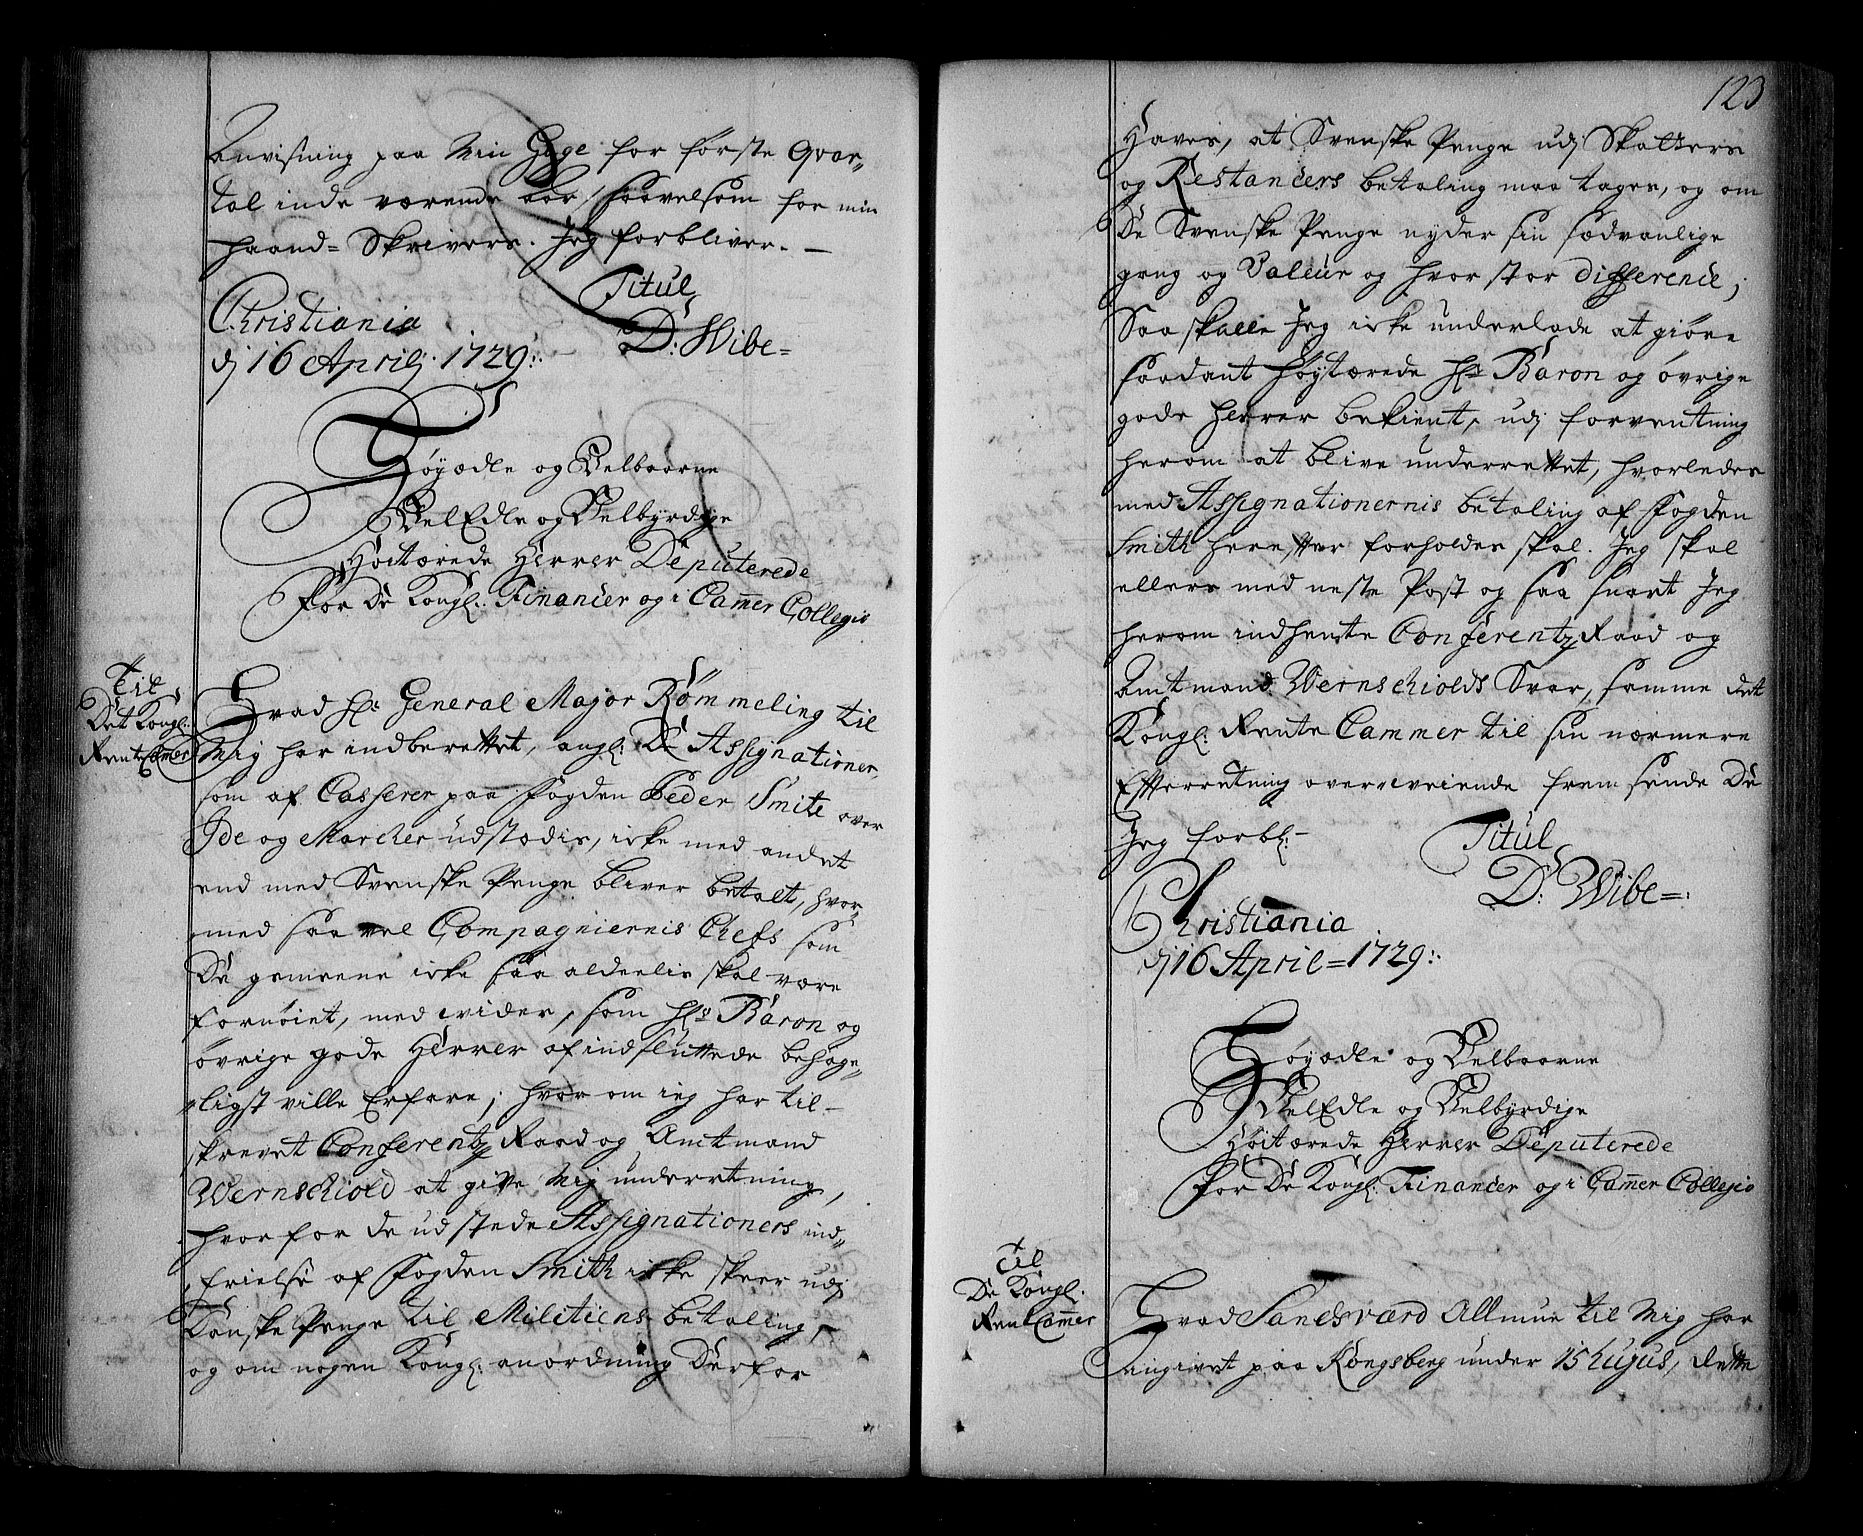 Anvisning paa Min Gage for første Qvar-
tal inde værende aar, saavelsom for min
haand= Skrivers. Jeg forbliver. —
Titul
Christiania
dj 16 Aprilj. 1729:.
D: Wibe=
Høyædle og Velbaarne
VelEdle og Velbyrdige
Høitærede Herrer Deputerede
For De Kongl: Financer og i Camer Collegio
Til
Det Kongl:
Rente Camer
Hvad Hr: General Major Rømmeling til
Mig har indberettet, angl: De Assignationer,
som af Casserer paa Fogden Peder Smite over
Ide og Marcker udstædis, icke med andet
end med Svenske Penge bliver betalt, hvor-
med saa vel Compagniernis Chefs som
De gemeene icke saa aldeelis skal være
fornøiet, med widere, som Hr: Baron og
øvrige gode Herrer af indsluttede behage-
ligst ville Erfare, hvor om jeg har til-
skrevet Conferentz Raad og Amtmand
Wernschiold at give Mig underretning,
hvor for de udstede Assignationers ind-
frielse af Fogden Smith icke skeer udj
Danske Penge til Militiens betaling,
og om nogen Kongl: anordning Derfor
123
Haves, at Svenske Penge udj Skatters
og Restancers betaling maa tages, og om
De Svenske Penge nyder sin sædvanlige
gang og Valeur og hvor stor difference;
Saa skulle Jeg icke underlade at giøre
saadant Høytærede Hr: Baron og øvrige
gode Herrer bekient, udj forventning
herom at blive underrettet, hvorledes
med Assignationernis betaling af Fogden
Smith herefter forholdes skal. Jeg skal
ellers med neste Post og saa snart Jeg
herom indhente Conferentz Raad og
Amtmand Wernschiolds Svar, samme det
Kongl: Rente Cammer til sin nærmere
Efterretning overveiende frem sende De
Jeg forbl: —
Titul
D: Wibe=:
Christiania
dj 16 April= 1729:.
Høyædle og Velbaarne
VelEdle og Velbyrdige
Høitærede Herrer Deputerede
For De Kongl: Financer og i Camer Collegio
Til
De Kongl.
Rent Camer
Hvad Sandsværd Allmue til Mig har
angivet paa Kongsberg under 15 hujus, dette